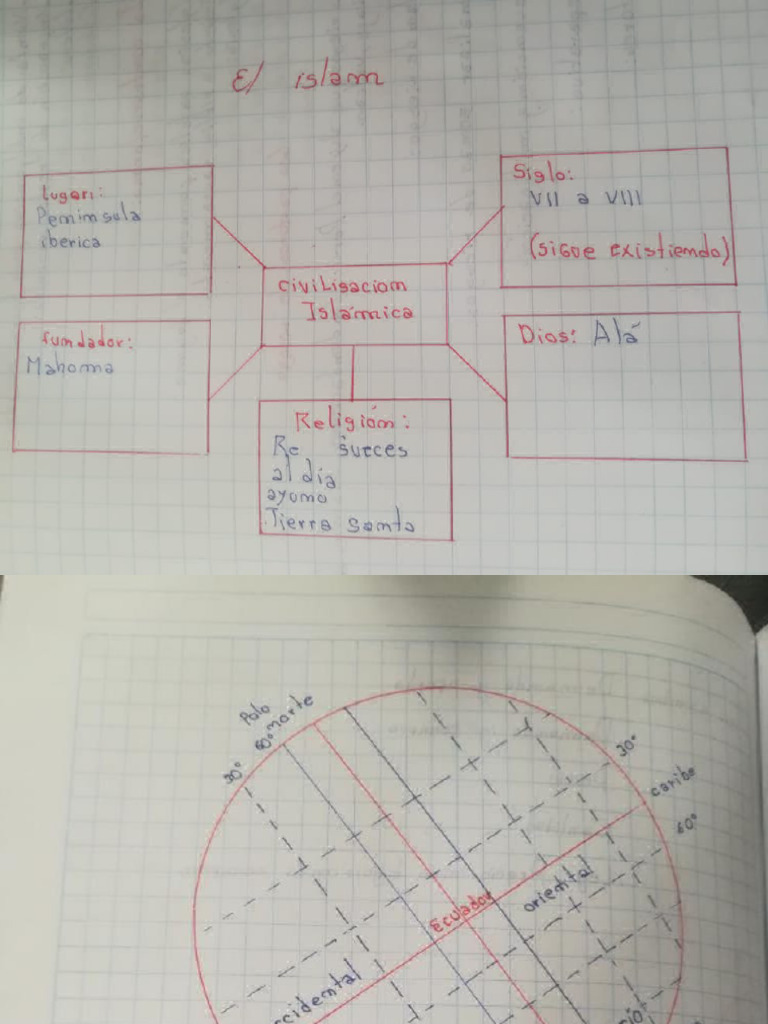 El islam
Lugar:
Peninsula
iberica
Siglo:
VII a VIII
(sigue existiendo)
civilisacion
Islámica
fundador:
Mahoma
Dios: Alá
Religión:
Re surces
al dia
ayomo
Tierra santa
Polo
norte
60°
30°
30°
caribe
60°
Ecuador
oriental
ccidental